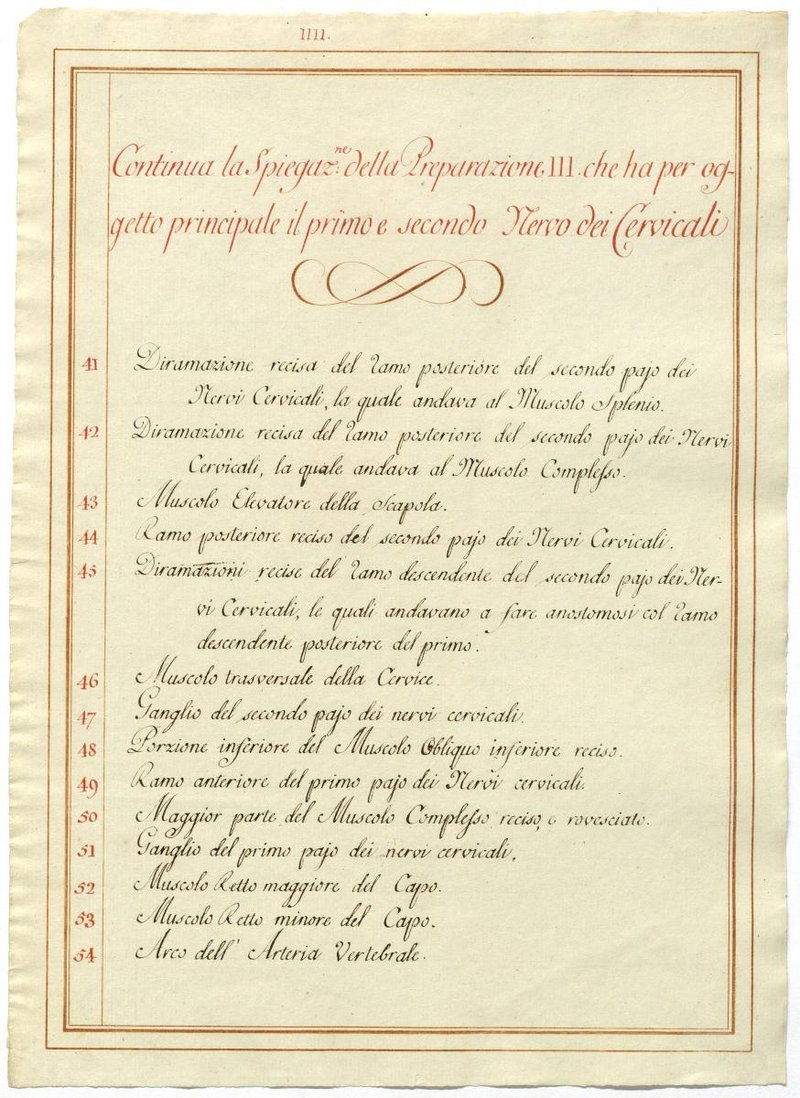 IIII.
Continua la Spiegaz.ne della Preparazione III. che ha per og-
getto principale il primo e secondo Nervo dei Cervicali
41 Diramazione recisa del ramo posteriore del secondo pajo dei
Nervi Cervicali, la quale andava al Muscolo Splenio.
42 Diramazione recisa del ramo posteriore del secondo pajo dei Nervi
Cervicali, la quale andava al Muscolo Complesso.
43 Muscolo Elevatore della Scapola.
44 Ramo posteriore reciso del secondo pajo dei Nervi Cervicali.
45 Diramazioni recise del ramo descendente del secondo pajo dei Ner-
vi Cervicali, le quali andavano a fare anostomosi col ramo
descendente posteriore del primo.
46 Muscolo trasversale della Cervice.
47 Ganglio del secondo pajo dei nervi cervicali.
48 Porzione inferiore del Muscolo Obliquo inferiore reciso.
49 Ramo anteriore del primo pajo dei Nervi cervicali.
50 Maggior parte del Muscolo Complesso reciso, e rovesciato.
51 Ganglio del primo pajo dei nervi cervicali,
52 Muscolo Retto maggiore del Capo.
53 Muscolo Retto minore del Capo.
54 Arco dell' Arteria Vertebrale.